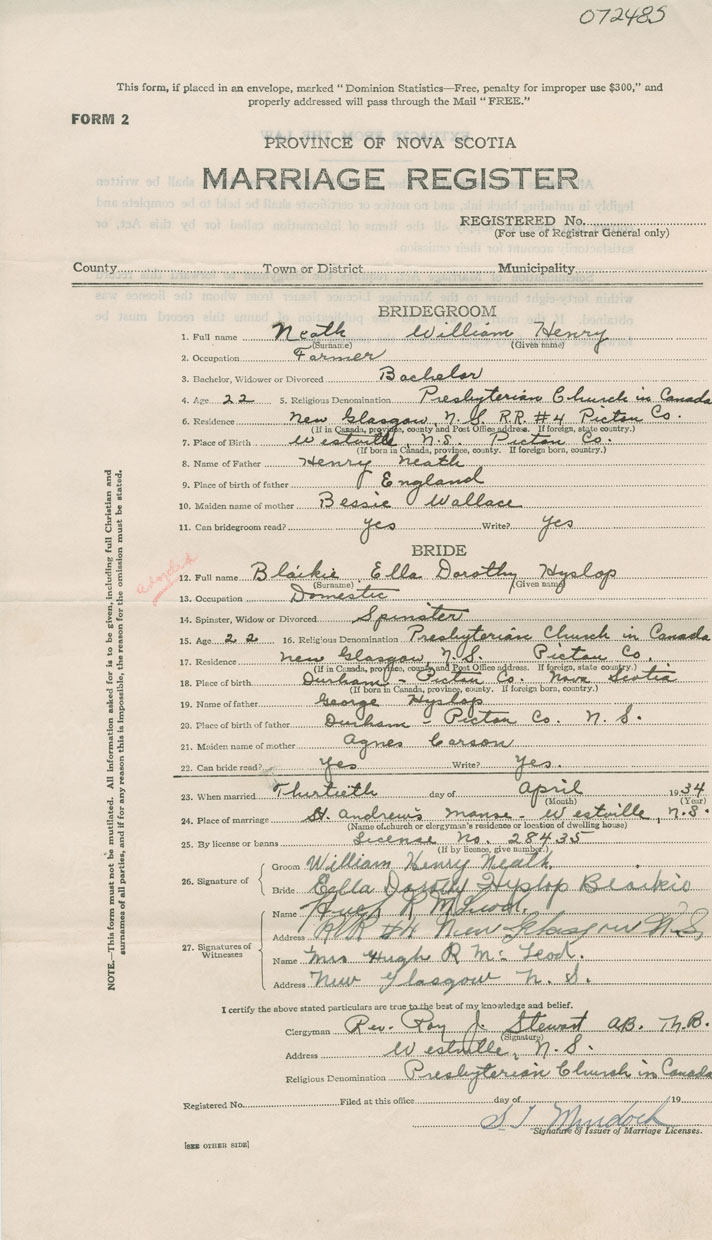 072485
This form, if placed in an envelope, marked "Dominion Statistics—Free, penalty for improper use $300," and
properly addressed will pass through the Mail "FREE."
FORM 2
PROVINCE OF NOVA SCOTIA
MARRIAGE REGISTER
REGISTERED No.
(For use of Registrar General only)
County Town or District Municipality
BRIDEGROOM
1. Full name Neath William Henry
(Surname) (Given name)
2. Occupation Farmer
3. Bachelor, Widower or Divorced Bachelor
4. Age 22 5. Religious Denomination Presbyterian Church in Canada
6. Residence New Glasgow, N.S. R.R. #4 Pictou Co.
(If in Canada, province, county and Post Office address. If foreign, state country.)
7. Place of Birth Westville, N.S. Pictou Co.
(If born in Canada, province, county. If foreign born, country.)
8. Name of Father Henry Neath
9. Place of birth of father England
10. Maiden name of mother Bessie Wallace
11. Can bridegroom read? Yes Write? Yes
BRIDE
adopted
12. Full name Blaikie Ella Dorothy Hyslop
(Surname) (Given name)
13. Occupation Domestic
14. Spinster, Widow or Divorced Spinster
15. Age 22 16. Religious Denomination Presbyterian Church in Canada
17. Residence New Glasgow, N.S. Pictou Co.
(If in Canada, province, county and Post Office address. If foreign, state country.)
18. Place of birth Durham - Pictou Co. Nova Scotia
(If born in Canada, province, county. If foreign born, country.)
19. Name of father George Hyslop
20. Place of birth of father Durham - Pictou Co. N.S.
21. Maiden name of mother Agnes Carson
22. Can bride read? Yes Write? Yes.
23. When married Thirtieth day of April 1934
(Month) (Year)
24. Place of marriage St. Andrew's Manse - Westville, N.S.
(Name of church or clergyman's residence or location of dwelling house)
25. By license or banns License No. 28435
(If by licence, give number.)
26. Signature of
Groom William Henry Neath
Bride Ella Dorothy Hyslop Blaikie
27. Signatures of Witnesses
Name Hugh R McLeod
Address R.R #4 New Glasgow N.S.
Name Mrs Hugh R McLeod.
Address New Glasgow N.S.
I certify the above stated particulars are true to the best of my knowledge and belief.
Clergyman Rev. Roy J. Stewart A.B. Th.B.
(Signature)
Address Westville, N.S.
Religious Denomination Presbyterian Church in Canada
Registered No. Filed at this office day of 19
Murdoch
Signature of Issuer of Marriage Licenses.
[SEE OTHER SIDE]
NOTE.—This form must not be mutilated. All information asked for is to be given, including full Christian and
surnames of all parties, and if for any reason this is impossible, the reason for the omission must be stated.